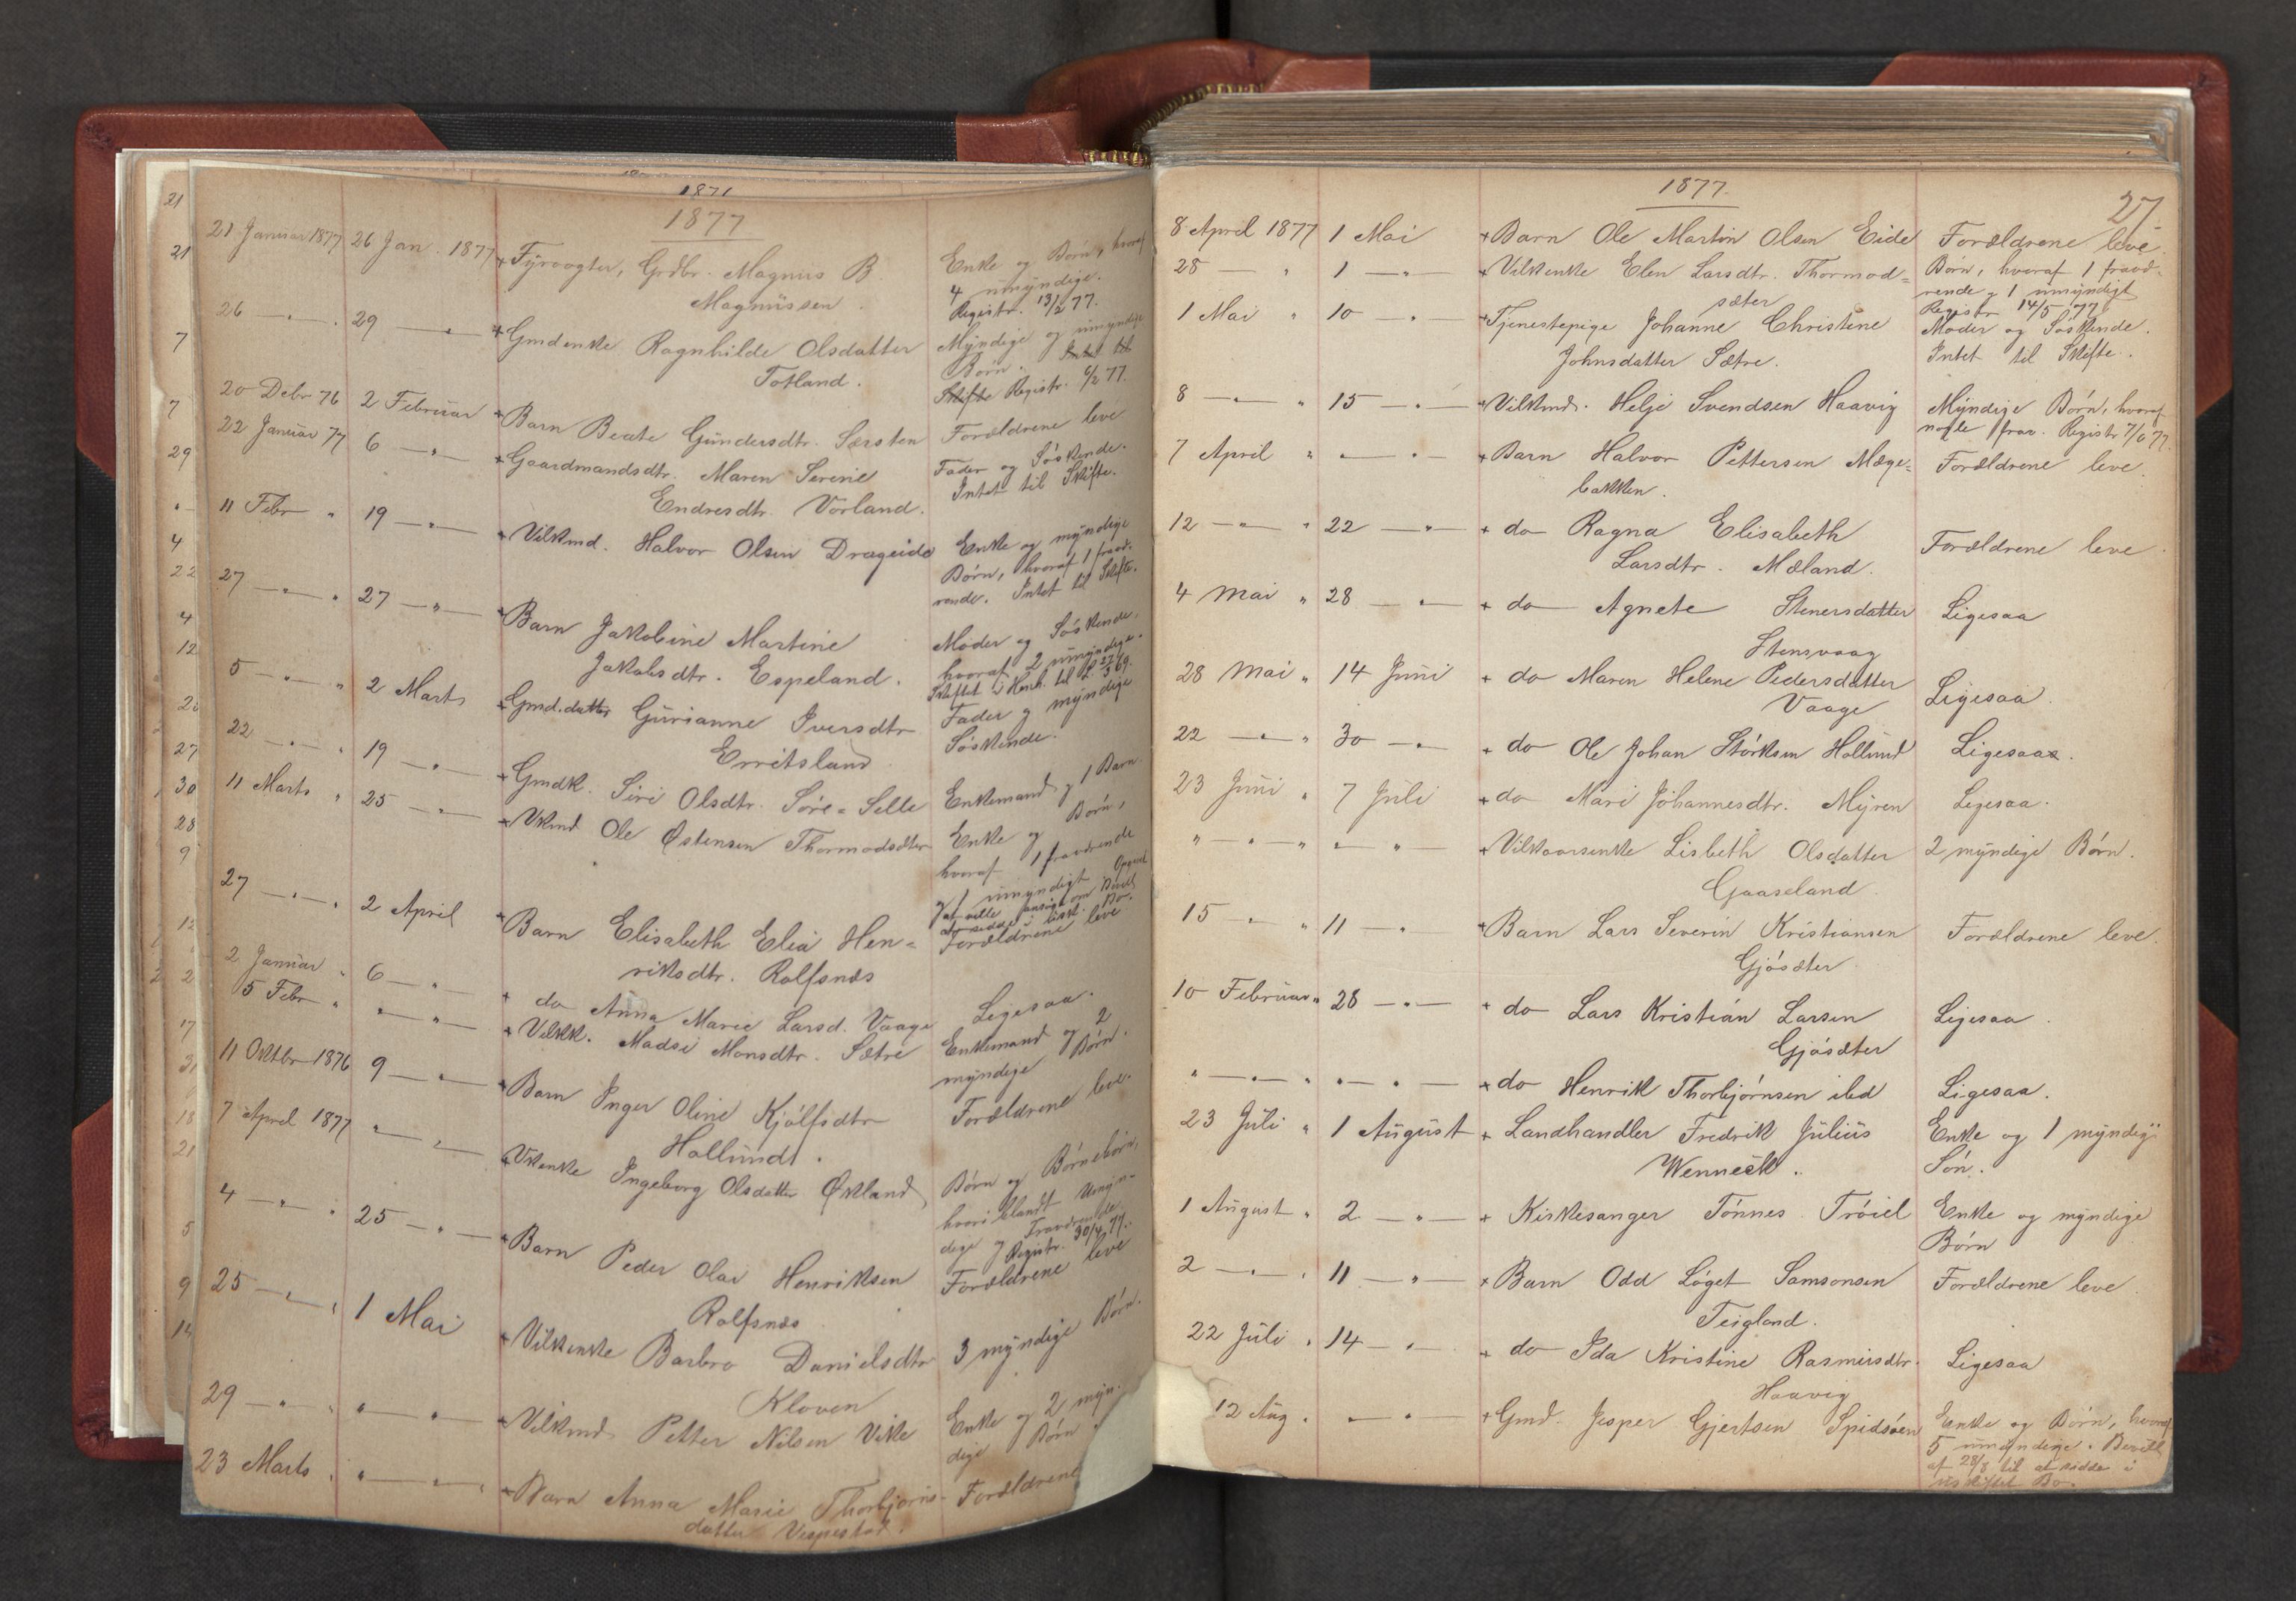 1871
1877
21 Januar 1877 26 Jan. 1877 + Fyrvogter, Grdbr. Magnus B. Enke og Børn, hvoraf
Magnussen. 4 umyndige.
Registr. 13/2 77.
26 — " — " 29 — " — + Gmdenke Ragnhilde Olsdatter Myndige og umyndige
Totland. Børn. Intet til
Skifte Registr. 6/2 77.
20 Debr 76 2 Februar + Barn Beate Gundersdtr. Særsten Forældrene leve
22 Januar 77 6 — " — + Gaardmandsdtr. Maren Serine Fader og Søskende.
Endresdtr. Vorland. Intet til Skifte.
11 Febr " 19 — " — + Vilkmd. Halvor Olsen Drageide Enke og myndige
Børn, hvoraf 1 fravæ-
rende. Intet til Skifte.
27 — " — " 27 — " — + Barn Jakobine Martine Moder og Søskende,
Jakobsdtr. Espeland. hvoraf 2 umyndige.
5 — " — " 2 Marts + Gmd.datter Gurianne Iversdtr Fader og myndige
Erritsland Søskende.
22 — " — " 19 — " — + Gmdk. Siri Olsdtr. Søre-Selle Enkemand og 1 Barn.
11 Marts " 25 — " — + Vkmd Ole Østensen Thormodsæter Enke og Børn,
hvoraf 1 fraværende
og 1 umyndigt
27 — " — " 2 April + Barn Elisabeth Elia Hen- Forældrene leve
riksdtr. Rolfsnæs
2 Januar " 6 — " — + do Anna Marie Larsd. Vaage Ligesaa.
5 Febr " " — " — + Vilkk. Madsi Monsdtr. Sætre Enkemand og 2
myndige Børn.
11 Oktbr 1876 9 — " — + Barn Inger Oline Kjølfsdtr Forældrene leve.
Hollundt.
7 April 1877 " — " — + Vkenke Ingeborg Olsdatter Økland Børn og Børnebørn,
hvoriblandt Umyn-
dige og Fraværende
Registr. 30/4 77.
4 — " — " 25 — " — + Barn Peder Olai Henriksen Forældrene leve
Rolfsnæs
25 — " — " 1 Mai + Vilkenke Barbro Danielsdtr 3 myndige Børn.
Kloven
29 — " — " " — " — + Vilkmd Petter Nilsen Vike Enke og 2 myn-
dige Børn
23 Marts " " — " — + Barn Anna Marie Thorbjørns- Forældrene
datter Vespestad.
1877.
27
8 April 1877 1 Mai + Barn Ole Martin Olsen Eide Forældrene leve.
28 — " 1 — " — + Vilkenke Elen Larsdtr. Thormod- Børn, hvoraf 1 fravæ-
sæter rende og 1 umyndigt
Registr 14/5 77
1 Mai " 10 — " — + Tjenestepige Johanne Christine Moder og Søskende.
Johnsdatter Sætre. Intet til Skifte.
8 — " — " 15 — " — + Vilkmd. Helje Svendsen Haavig Myndige Børn, hvoraf
nogle frav. Registr 7/6 77.
7 April " " — " — + Barn Halvor Pettersen Mæge- Forældrene leve.
bakken.
12 — " — " 22 — " — + do Ragna Elisabeth
Larsdtr. Mæland. Forældrene leve.
4 Mai " 28 — " — + do Agnete Stenersdatter Ligesaa
Stensvaag
28 Mai " 14 Juni + do Maren Helene Pedersdatter Ligesaa.
Vaage
22 — " — " 30 — " — + do Ole Johan Størksen Hollund Ligesaa.
23 Juni " 7 Juli + do Mari Johannesdtr. Myren Ligesaa.
" — " — " " — " — + Vilkaarsenke Lisbeth Olsdatter 2 myndige Børn.
Gaaseland.
15 — " — " 11 — " — + Barn Lars Severin Kristiansen Forældrene leve.
Gjøsæter
10 Februar " 28 — " — + do Lars Kristian Larsen Ligesaa.
Gjøsæter
" — " — " " — " — + do Henrik Thorbjørnsen ibd Ligesaa.
23 Juli " 1 August + Landhandler Fredrik Julius Enke og 1 myndig
Wenneck. Søn.
1 August " 2 — " — + Kirkesanger Tønnes Trøiel Enke og myndige
Børn
2 — " — " 11 — " — + Barn Odd Løget Samsonsen Forældrene leve.
Teigland.
22 Juli " 14 — " — + do Ida Kristine Rasmusdtr. Ligesaa
Haavig
12 Aug. " — " — + Gmd. Jesper Gjertsen Spidsøen Enke og Børn, hvoraf
5 umyndige. Bevill.
af 28/8 til at sidde i
uskiftet Bo.